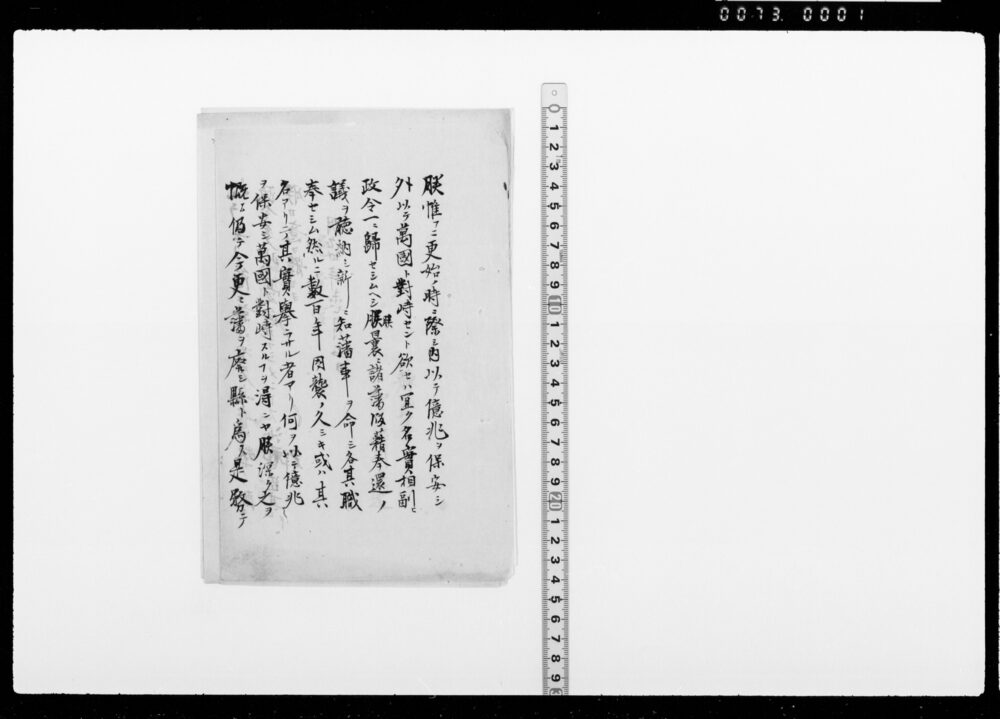 0073. 0001
朕惟フニ更始ノ時ニ際シ內以テ億兆ヲ保安シ
外以テ萬國ト對峙セント欲セハ宜ク名實相副ヒ
政令一ニ歸セシムヘシ朕曩ニ諸藩版籍奉還ノ
朕
議ヲ聽納シ新ニ知藩事ヲ命シ各其職
奉セシム然ルニ數百年因襲ノ久シキ或ハ其
名アリテ其實擧ラサル者アリ何ヲ以テ億兆
ヲ保安シ萬國ト對峙スルヿヲ得ンヤ朕深ク之ヲ
慨ス仍テ今更ニ藩ヲ廢シ縣ト爲ス是務テ
0 1 2 3 4 5 6 7 8 9 10 1 2 3 4 5 6 7 8 9 20 1 2 3 4 5 6 7 8 9